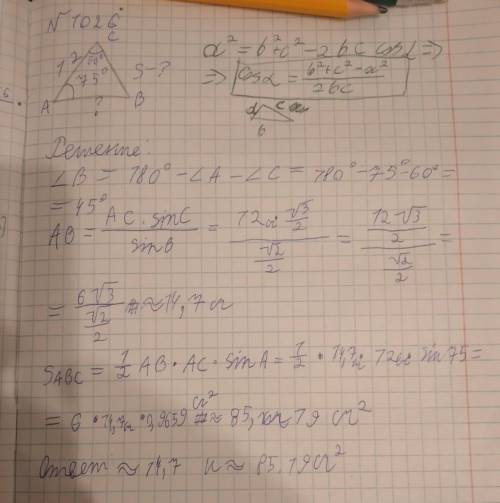 N 1026
C
12 60°
75° S-?
A ? B
a² = b²+c² - 2bc cosα ⇒
⇒ cosα = (b²+c²-a²)/(2bc)
α c a
b
Решение:
∠B = 180° - ∠A - ∠C = 180° - 75° - 60° =
= 45°
AB = (AC · sinC)/(sinB) = (12 · √3/2)/(√2/2) = (12√3/2)/(√2/2) =
= (6√3)/(√2/2) ≈ 14,7 см
S ABC = 1/2 AB · AC · sin A = 1/2 · 14,7 · 12 · sin 75 =
= 6 · 14,7 · 0,9659 см² ≈ 85,19 см²
Ответ ≈ 14,7 и ≈ 85.19 см²